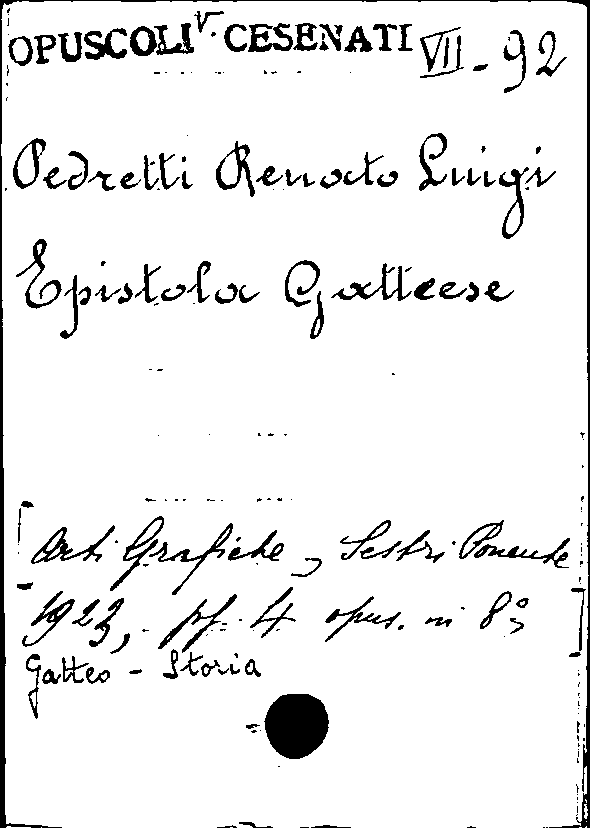 OPUSCOLI V. CESENATI VII - 92
Pedretti Renato Luigi
Epistola Gatteese
[Arti Grafiche, Sestri Ponente
1923, pp. 4 opus. in 8°]
Gatteo - Storia